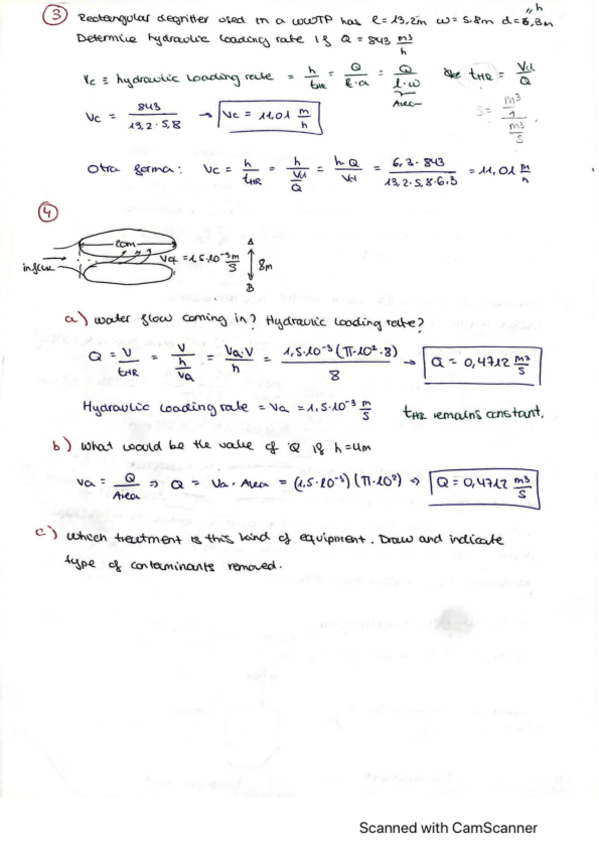 ③ Rectangular degritter used in a WWTP has l = 13,2m w = 5.8m d = 6,3m "h
Determine hydraulic loading rate if Q = 843 m³/h
Vc ≡ hydraulic loading rate = h/tHR = Q/l·a = Q/l·w Area tHR = Vol/Q
Vc = 843/13,2·5,8 → Vc = 11,01 m/h S = m³/1/m³/S
Otra forma: Vc = h/tHR = h/Vol/Q = h·Q/Vol = 6,3·843/13,2·5,8·6,3 = 11,01 m/h
④
20m A
influe Va = 1,5·10⁻³ m/S 8m
B
a) Water flow coming in? Hydraulic loading rate?
Q = V/tHR = V/h/Va = Va·V/h = 1,5·10⁻³(π·10²·8)/8 → Q = 0,4712 m³/S
Hydraulic loading rate = Va = 1,5·10⁻³ m/S tHR remains constant.
b) What would be the value of Q if h=4m
Va = Q/Area ⇒ Q = Va·Area = (1,5·10⁻³)(π·10²) → Q = 0,4712 m³/S
c) Which treatment is this kind of equipment. Draw and indicate
type of contaminants removed.
Scanned with CamScanner